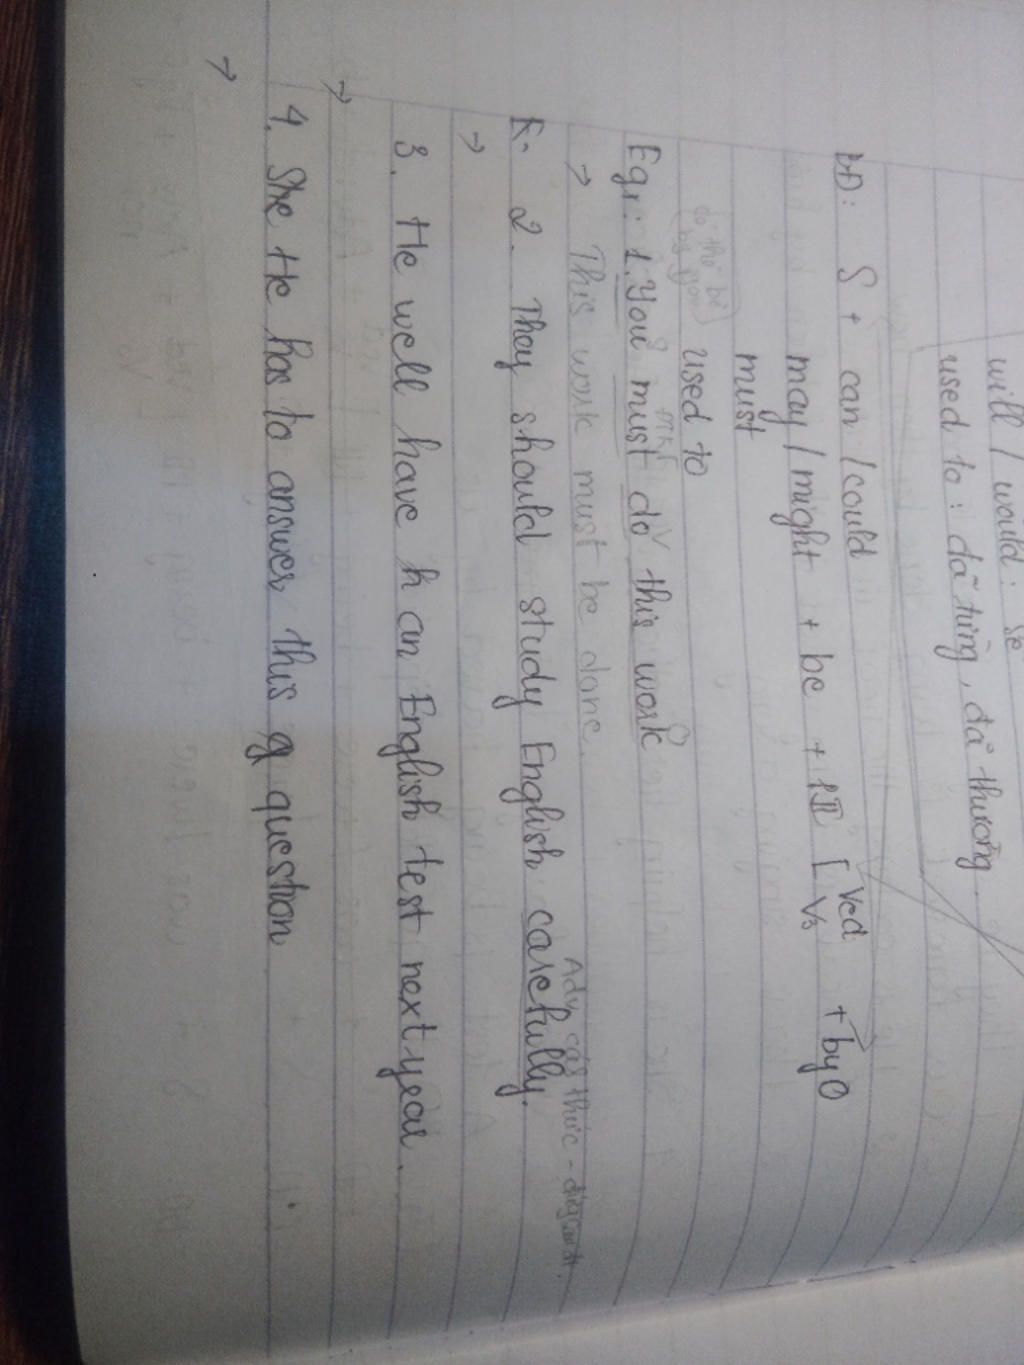 will / would : sẽ
used to : đã từng, đã thường.
bĐ: S + can / could
may / might + be + PII [ Ved V3 + by O
must
used to
Eg1: 1. You must do this work
→ This work must be done.
2. They should study English carefully.
→
3. He well have h an English test next year.
→
4. She He has to answer this q question
→